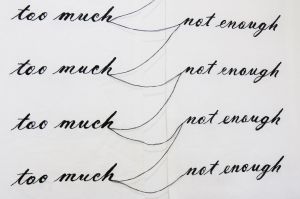 too much
not enough
too much
not enough
too much
not enough
too much
not enough